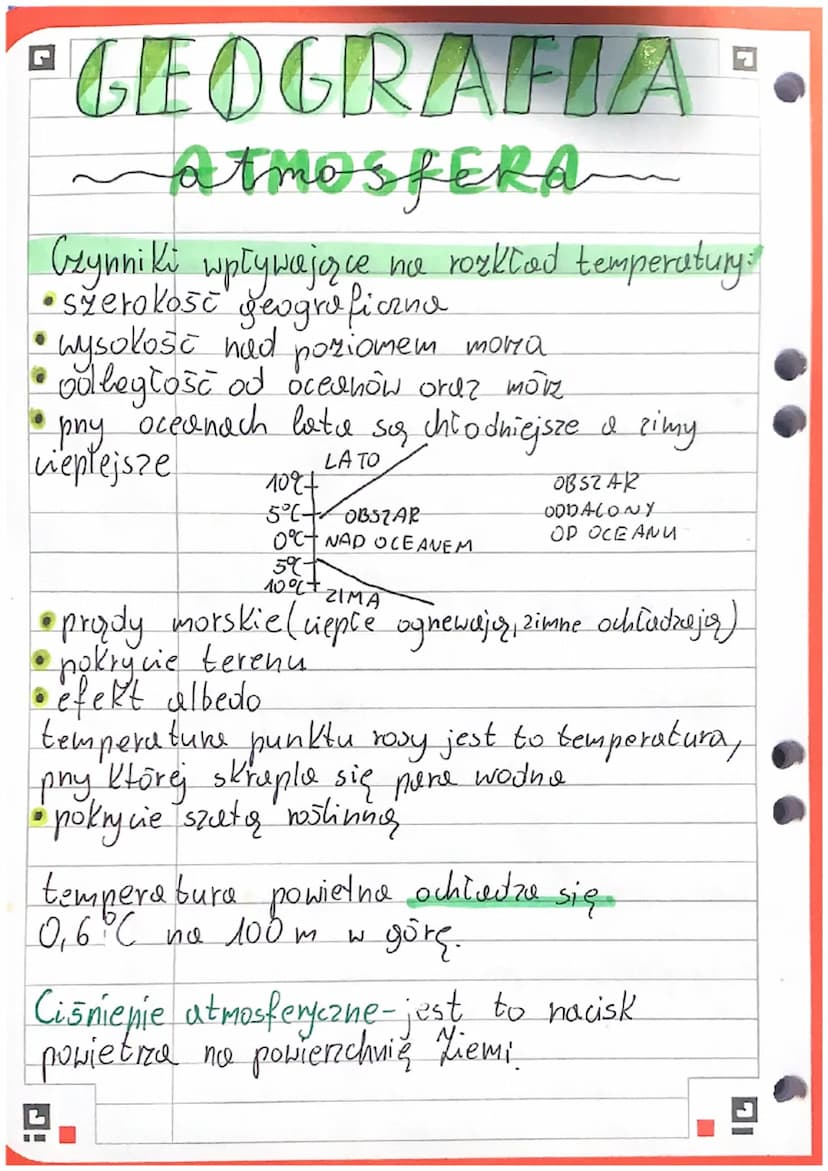 GEOGRAFIA
ATMOSFERA
atmosfera
Czynniki wpływające na rozkład temperatury:
• szerokość geograficzna
• wysokość nad poziomem morza
• odległość od oceanów oraz mórz
• przy oceanach lata są chłodniejsze a zimy
cieplejsze
LATO
10°C
5°C OBSZAR
0°C NAD OCEANEM
5°C
10°C
ZIMA
OBSZAR
ODDALONY
OD OCEANU
• prądy morskie (ciepłe ogrzewają, zimne ochładzają)
• pokrycie terenu
• efekt albedo
temperatura punktu rosy jest to temperatura,
przy której skrapla się para wodna
• pokrycie szatą roślinną
temperatura powietrza ochładza się
0,6°C na 100 m w górę.
Ciśnienie atmosferyczne - jest to nacisk
powietrza na powierzchnię Ziemi.